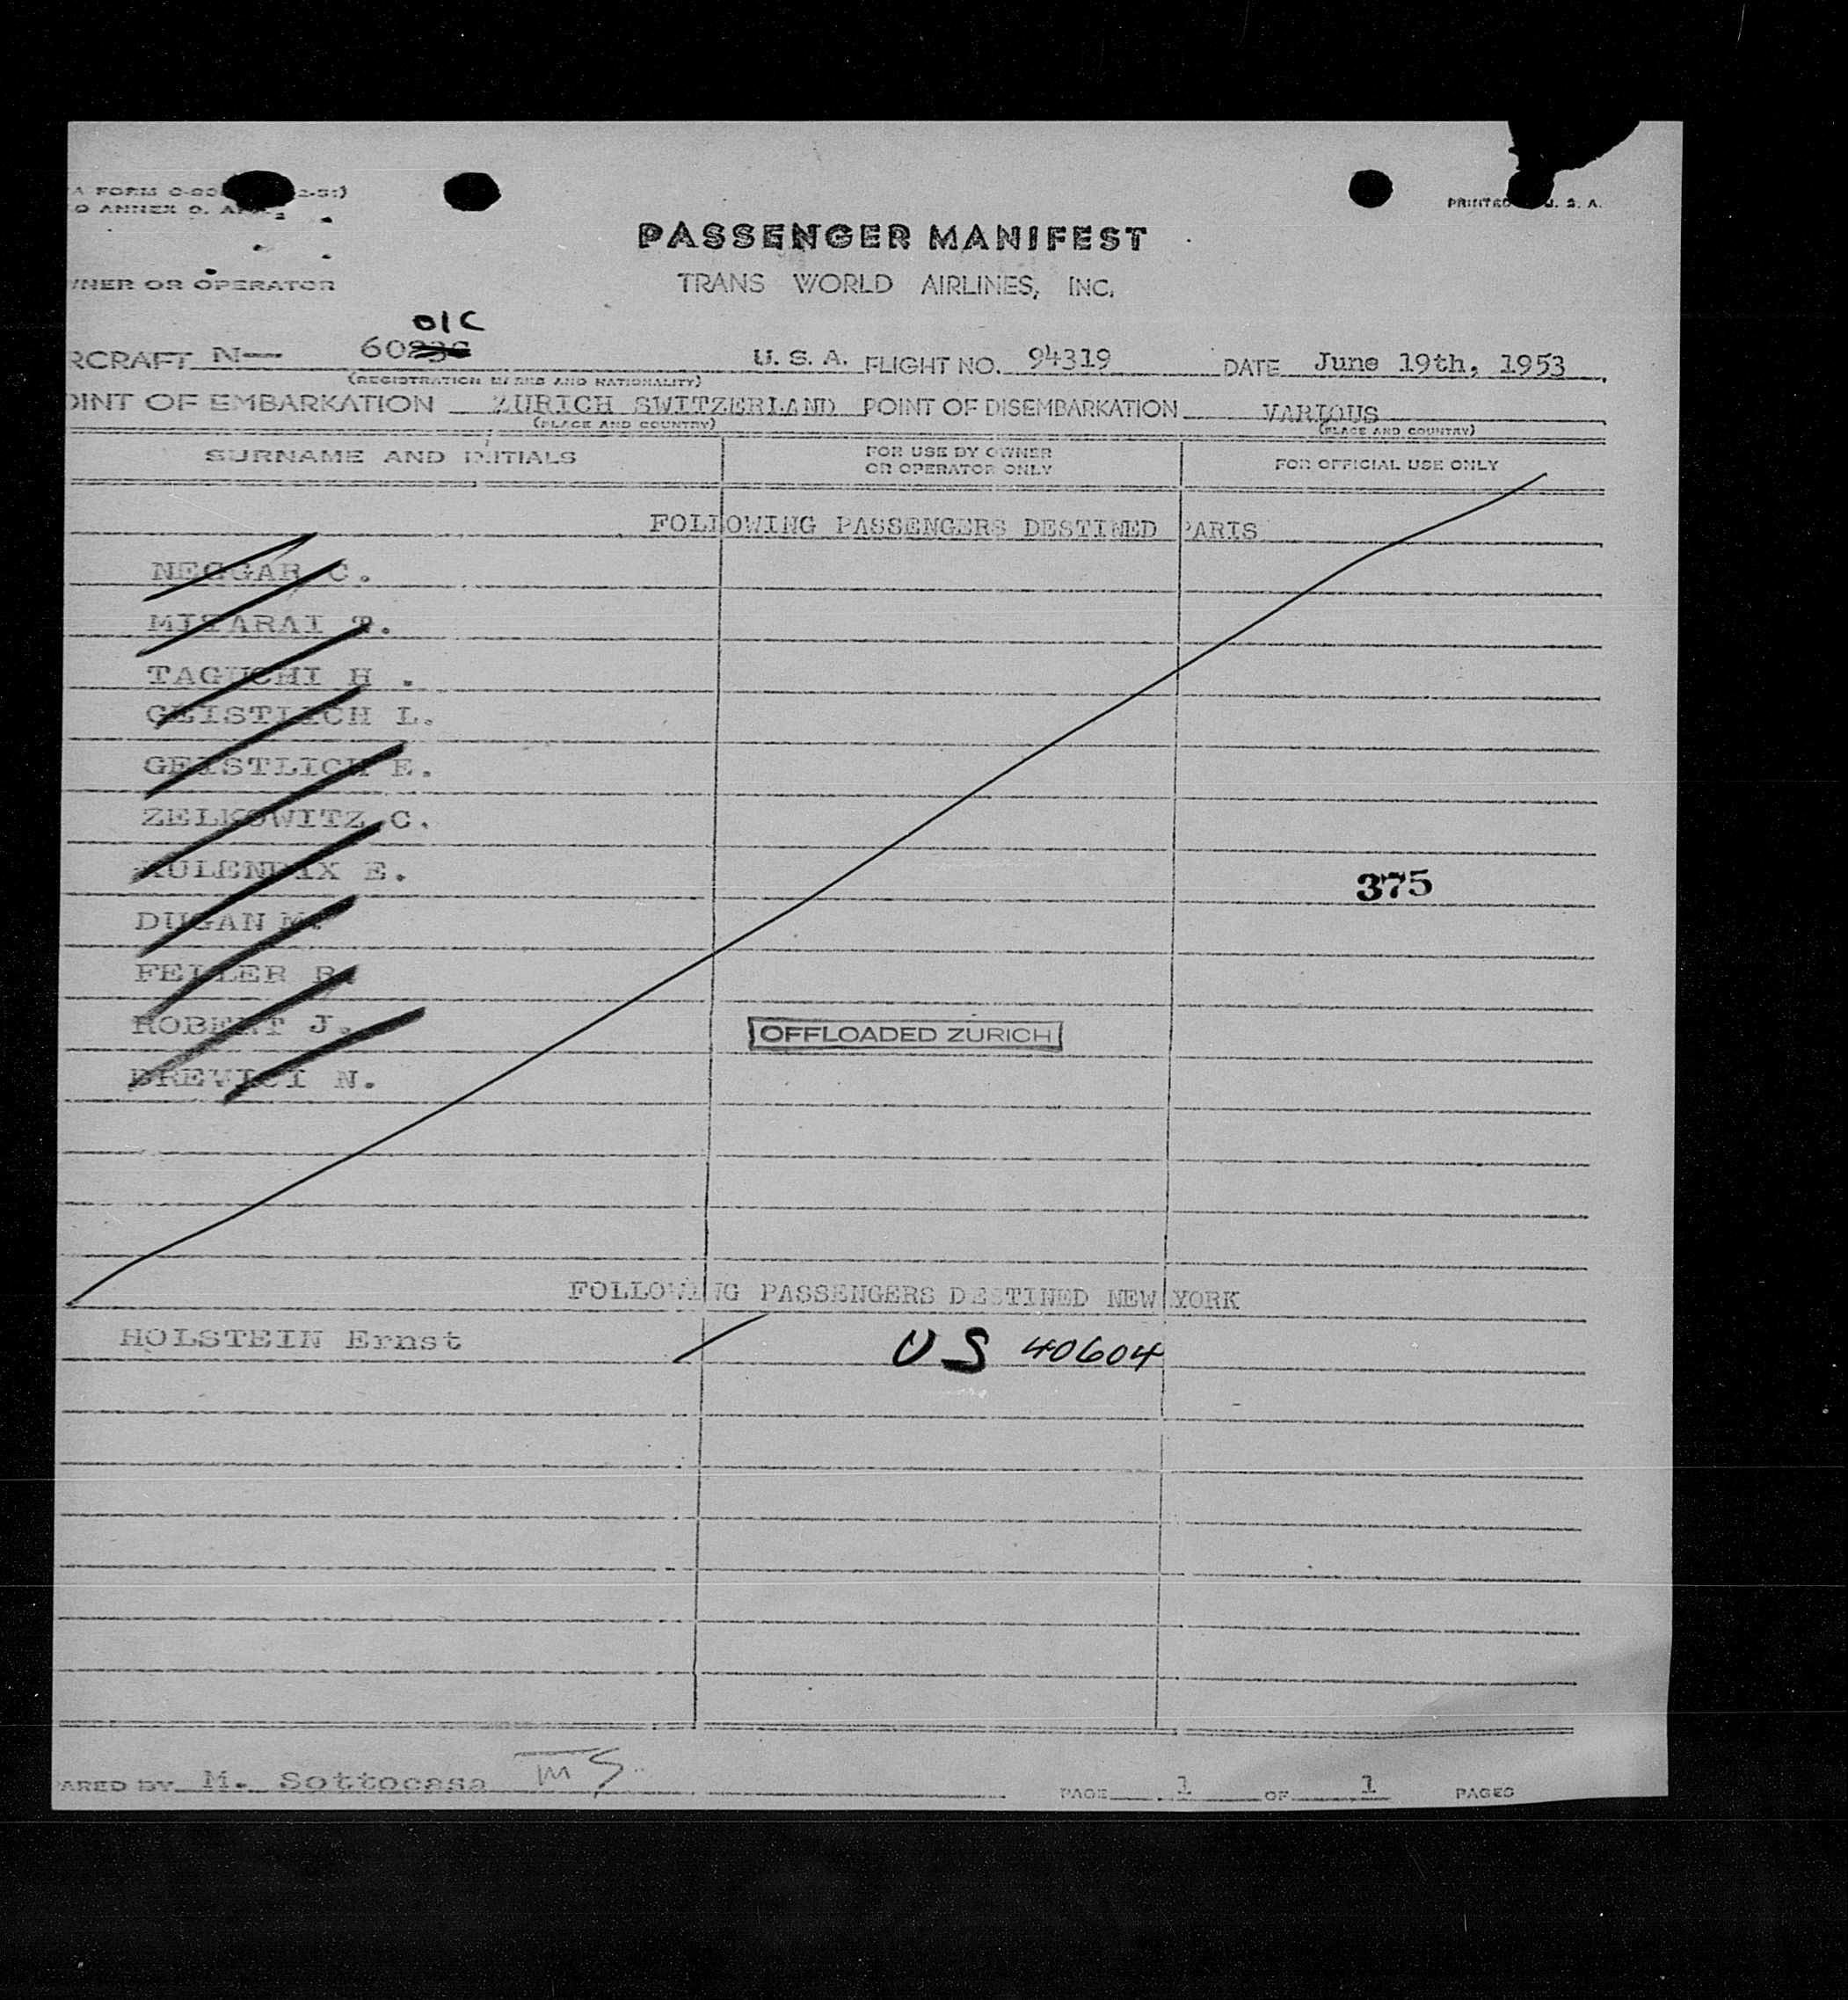 A FORM O-80 2-51)
O ANNEX 9,
PRINTED U. S. A.
PASSENGER MANIFEST
TRANS WORLD AIRLINES, INC.
WNER OR OPERATOR
01C
RCRAFT N— 60 U. S. A. FLIGHT NO. 94319 DATE June 19th, 1953
(REGISTRATION MARKS AND NATIONALITY)
OINT OF EMBARKATION ZURICH SWITZERLAND POINT OF DISEMBARKATION VARIOUS
(PLACE AND COUNTRY) (PLACE AND COUNTRY)
SURNAME AND INITIALS FOR USE BY OWNER OR OPERATOR ONLY FOR OFFICIAL USE ONLY
FOLLOWING PASSENGERS DESTINED PARIS
NEGGAR C.
MITARAI T.
TAGUCHI H .
GEISTLICH L.
GEISTLICH E.
ZELKOWITZ C.
E.
375
DUGAN M.
FELLER R.
ROBERT J.
OFFLOADED ZURICH
N.
FOLLOWING PASSENGERS DESTINED NEW YORK
HOLSTEIN Ernst US 40604
ARED BY M. Sottocasa MS
PAGE 1 OF 1 PAGES